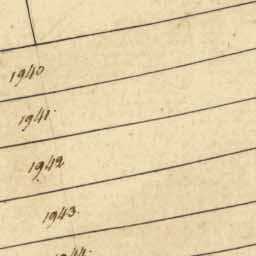 1940
1941.
1942
1943.
1944.